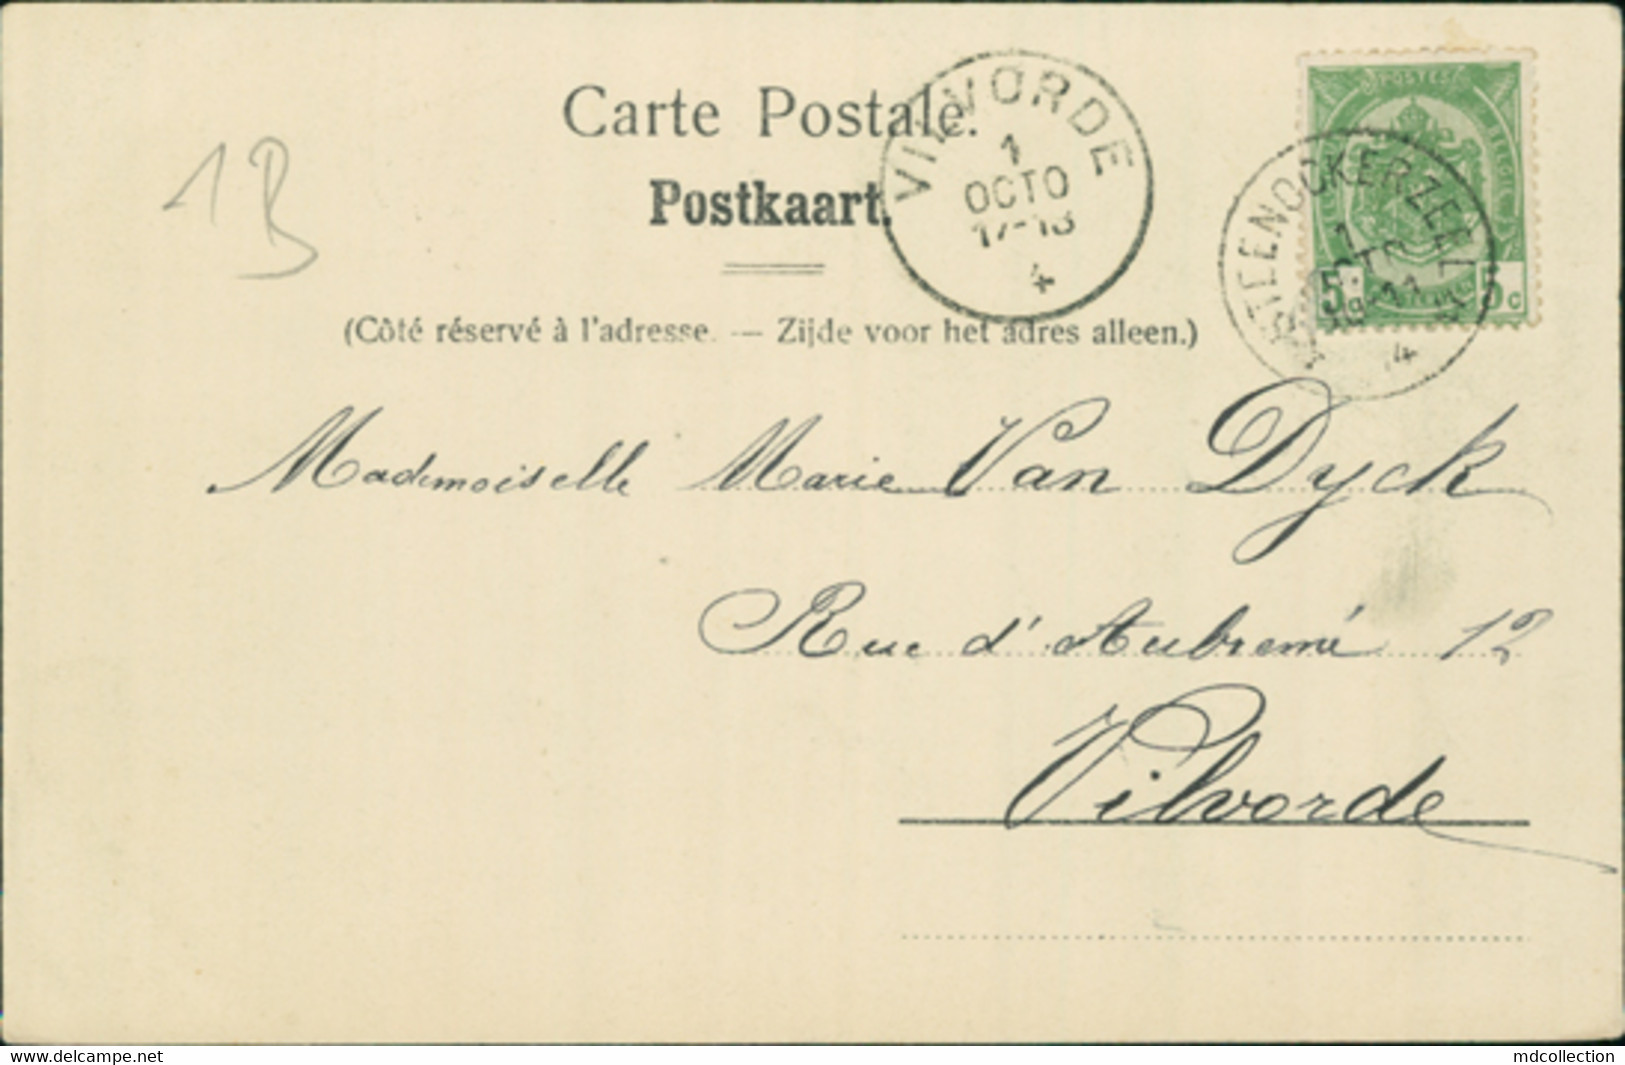 Carte Postale.
Postkaart.
(Côté réservé à l'adresse. — Zijde voor het adres alleen.)
1B
VILVORDE
1
OCTO
17-18
4
POSTES
5c
STEENOCKERZEEL
1
OCTO
4
Mademoiselle Marie Van Dyck
Rue d'Aubremé 12
Vilvorde
www.delcampe.net
mdcollection